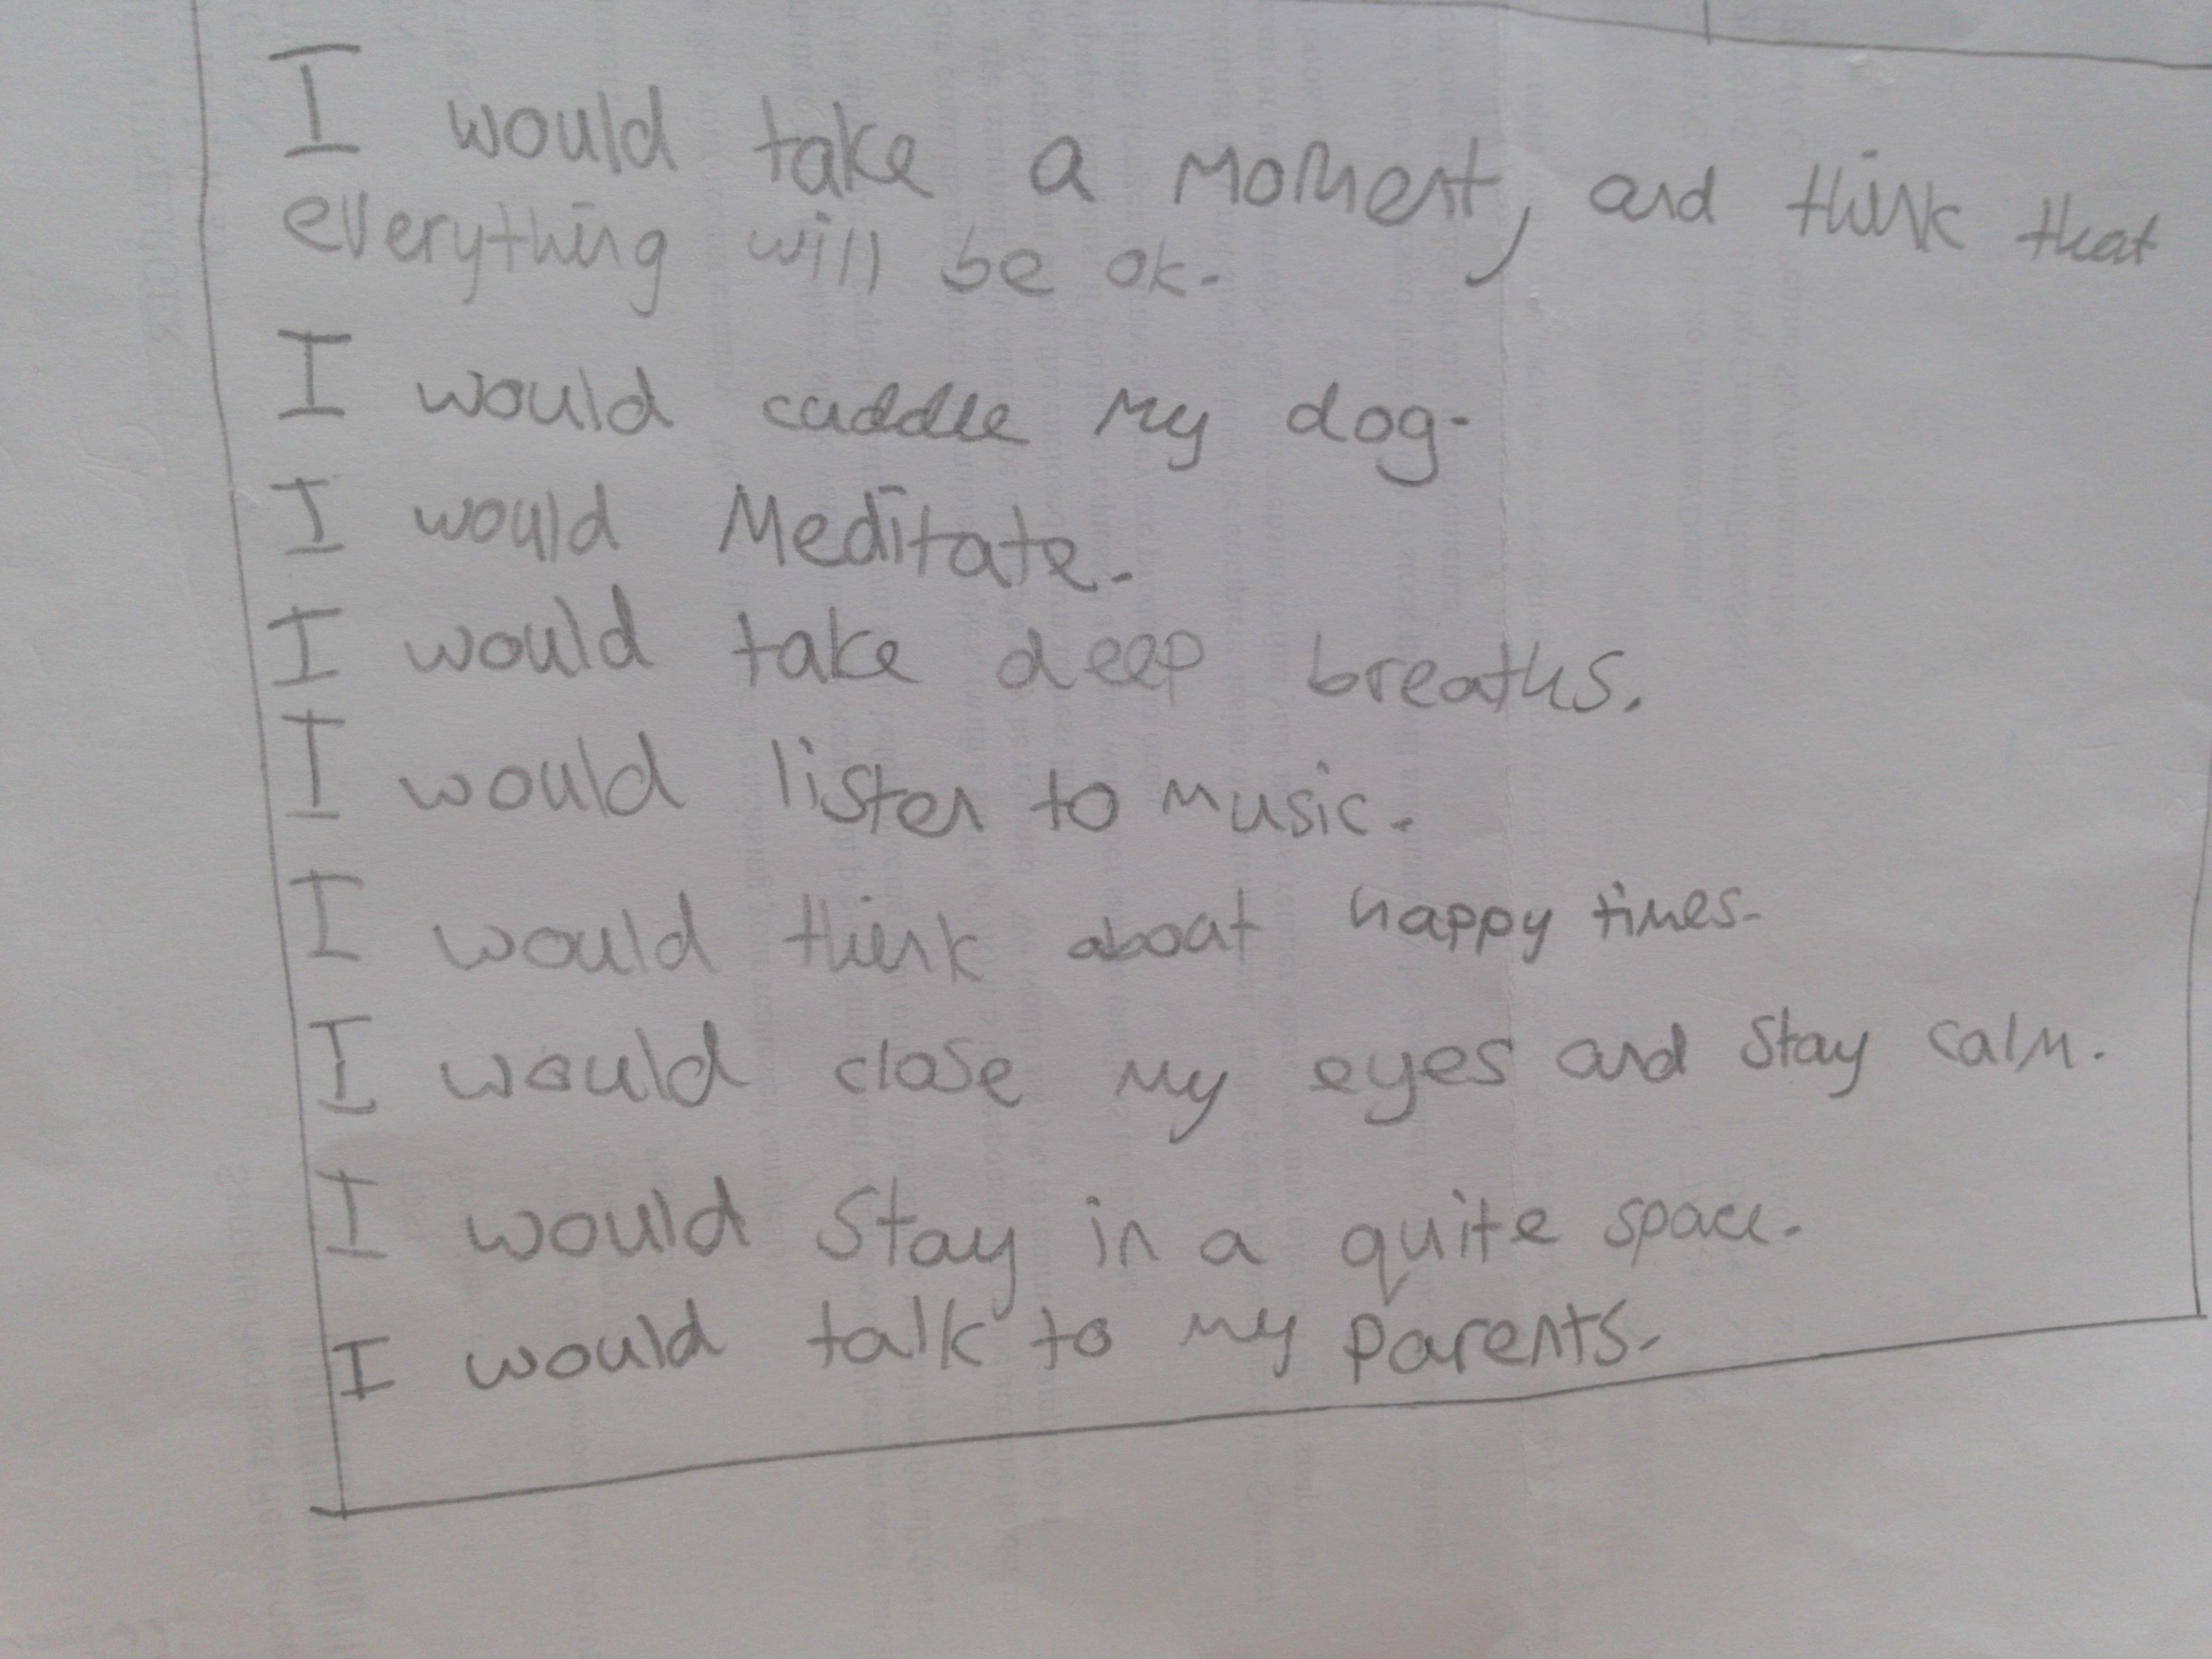 I would take a moment, and think that
everything will be ok.
I would cuddle my dog.
I would Meditate.
I would take deep breaths.
I would listen to music.
I would think about happy times.
I would close my eyes and stay calm.
I would stay in a quite space.
I would talk to my parents.